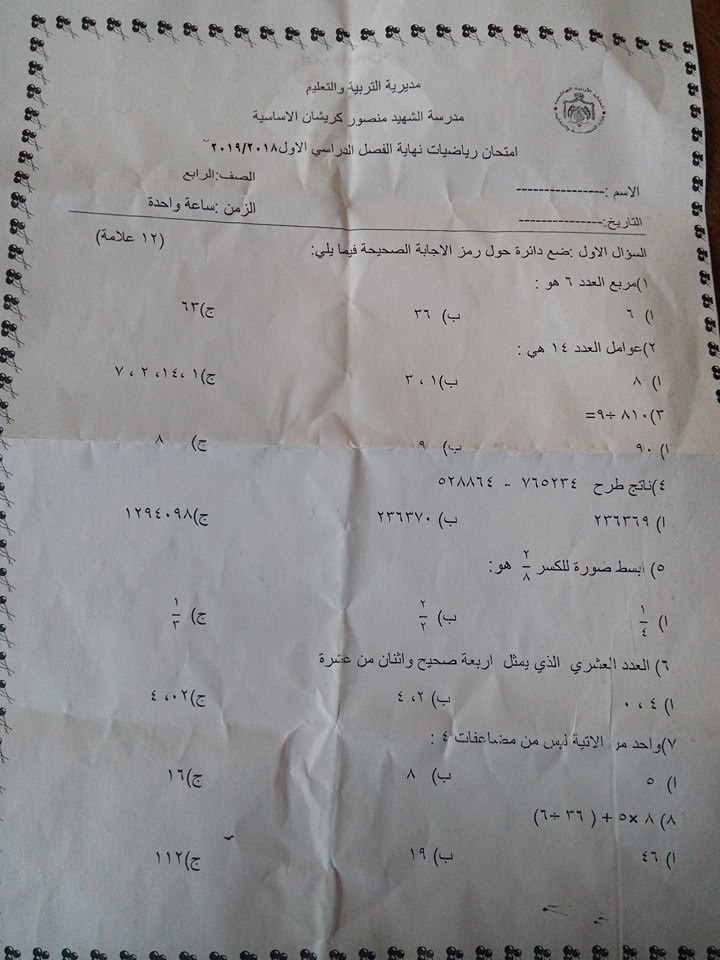 مديرية التربية والتعليم
مدرسة الشهيد منصور كريشان الاساسية
امتحان رياضيات نهاية الفصل الدراسي الاول٢٠١٩/٢٠١٨
الاسم :---------------- الصف:الرابع
التاريخ:--------------- الزمن :ساعة واحدة
السؤال الاول :ضع دائرة حول رمز الاجابة الصحيحة فيما يلي: (١٢ علامة)
١)مربع العدد ٦ هو :
ا) ٦ ب) ٣٦ ج)٦٣
٢)عوامل العدد ١٤ هي :
ا) ٨ ب)١ ، ٣ ج)١ ،١٤، ٢ ، ٧
٣)٨١٠ ÷٩=
ا) ٩٠ ب) ٩ ج) ٨
٤)ناتج طرح ٧٦٥٢٣٤ - ٥٢٨٨٦٤
ا) ٢٣٦٣٦٩ ب) ٢٣٦٣٧٠ ج)١٢٩٤٠٩٨
٥) أبسط صورة للكسر ٢/٨ هو:
ا) ١/٤ ب) ٢/٢ ج) ١/٣
٦) العدد العشري الذي يمثل اربعة صحيح واثنان من عشرة
ا) ٤ ، ٠ ب) ٢، ٤ ج)٠٢، ٤
٧)واحد من الاتية ليس من مضاعفات ٤ :
ا) ٥ ب) ٨ ج)١٦
٨) ٨ ×٥ + ( ٣٦ ÷٦)
ا) ٤٦ ب) ١٩ ج)١١٢